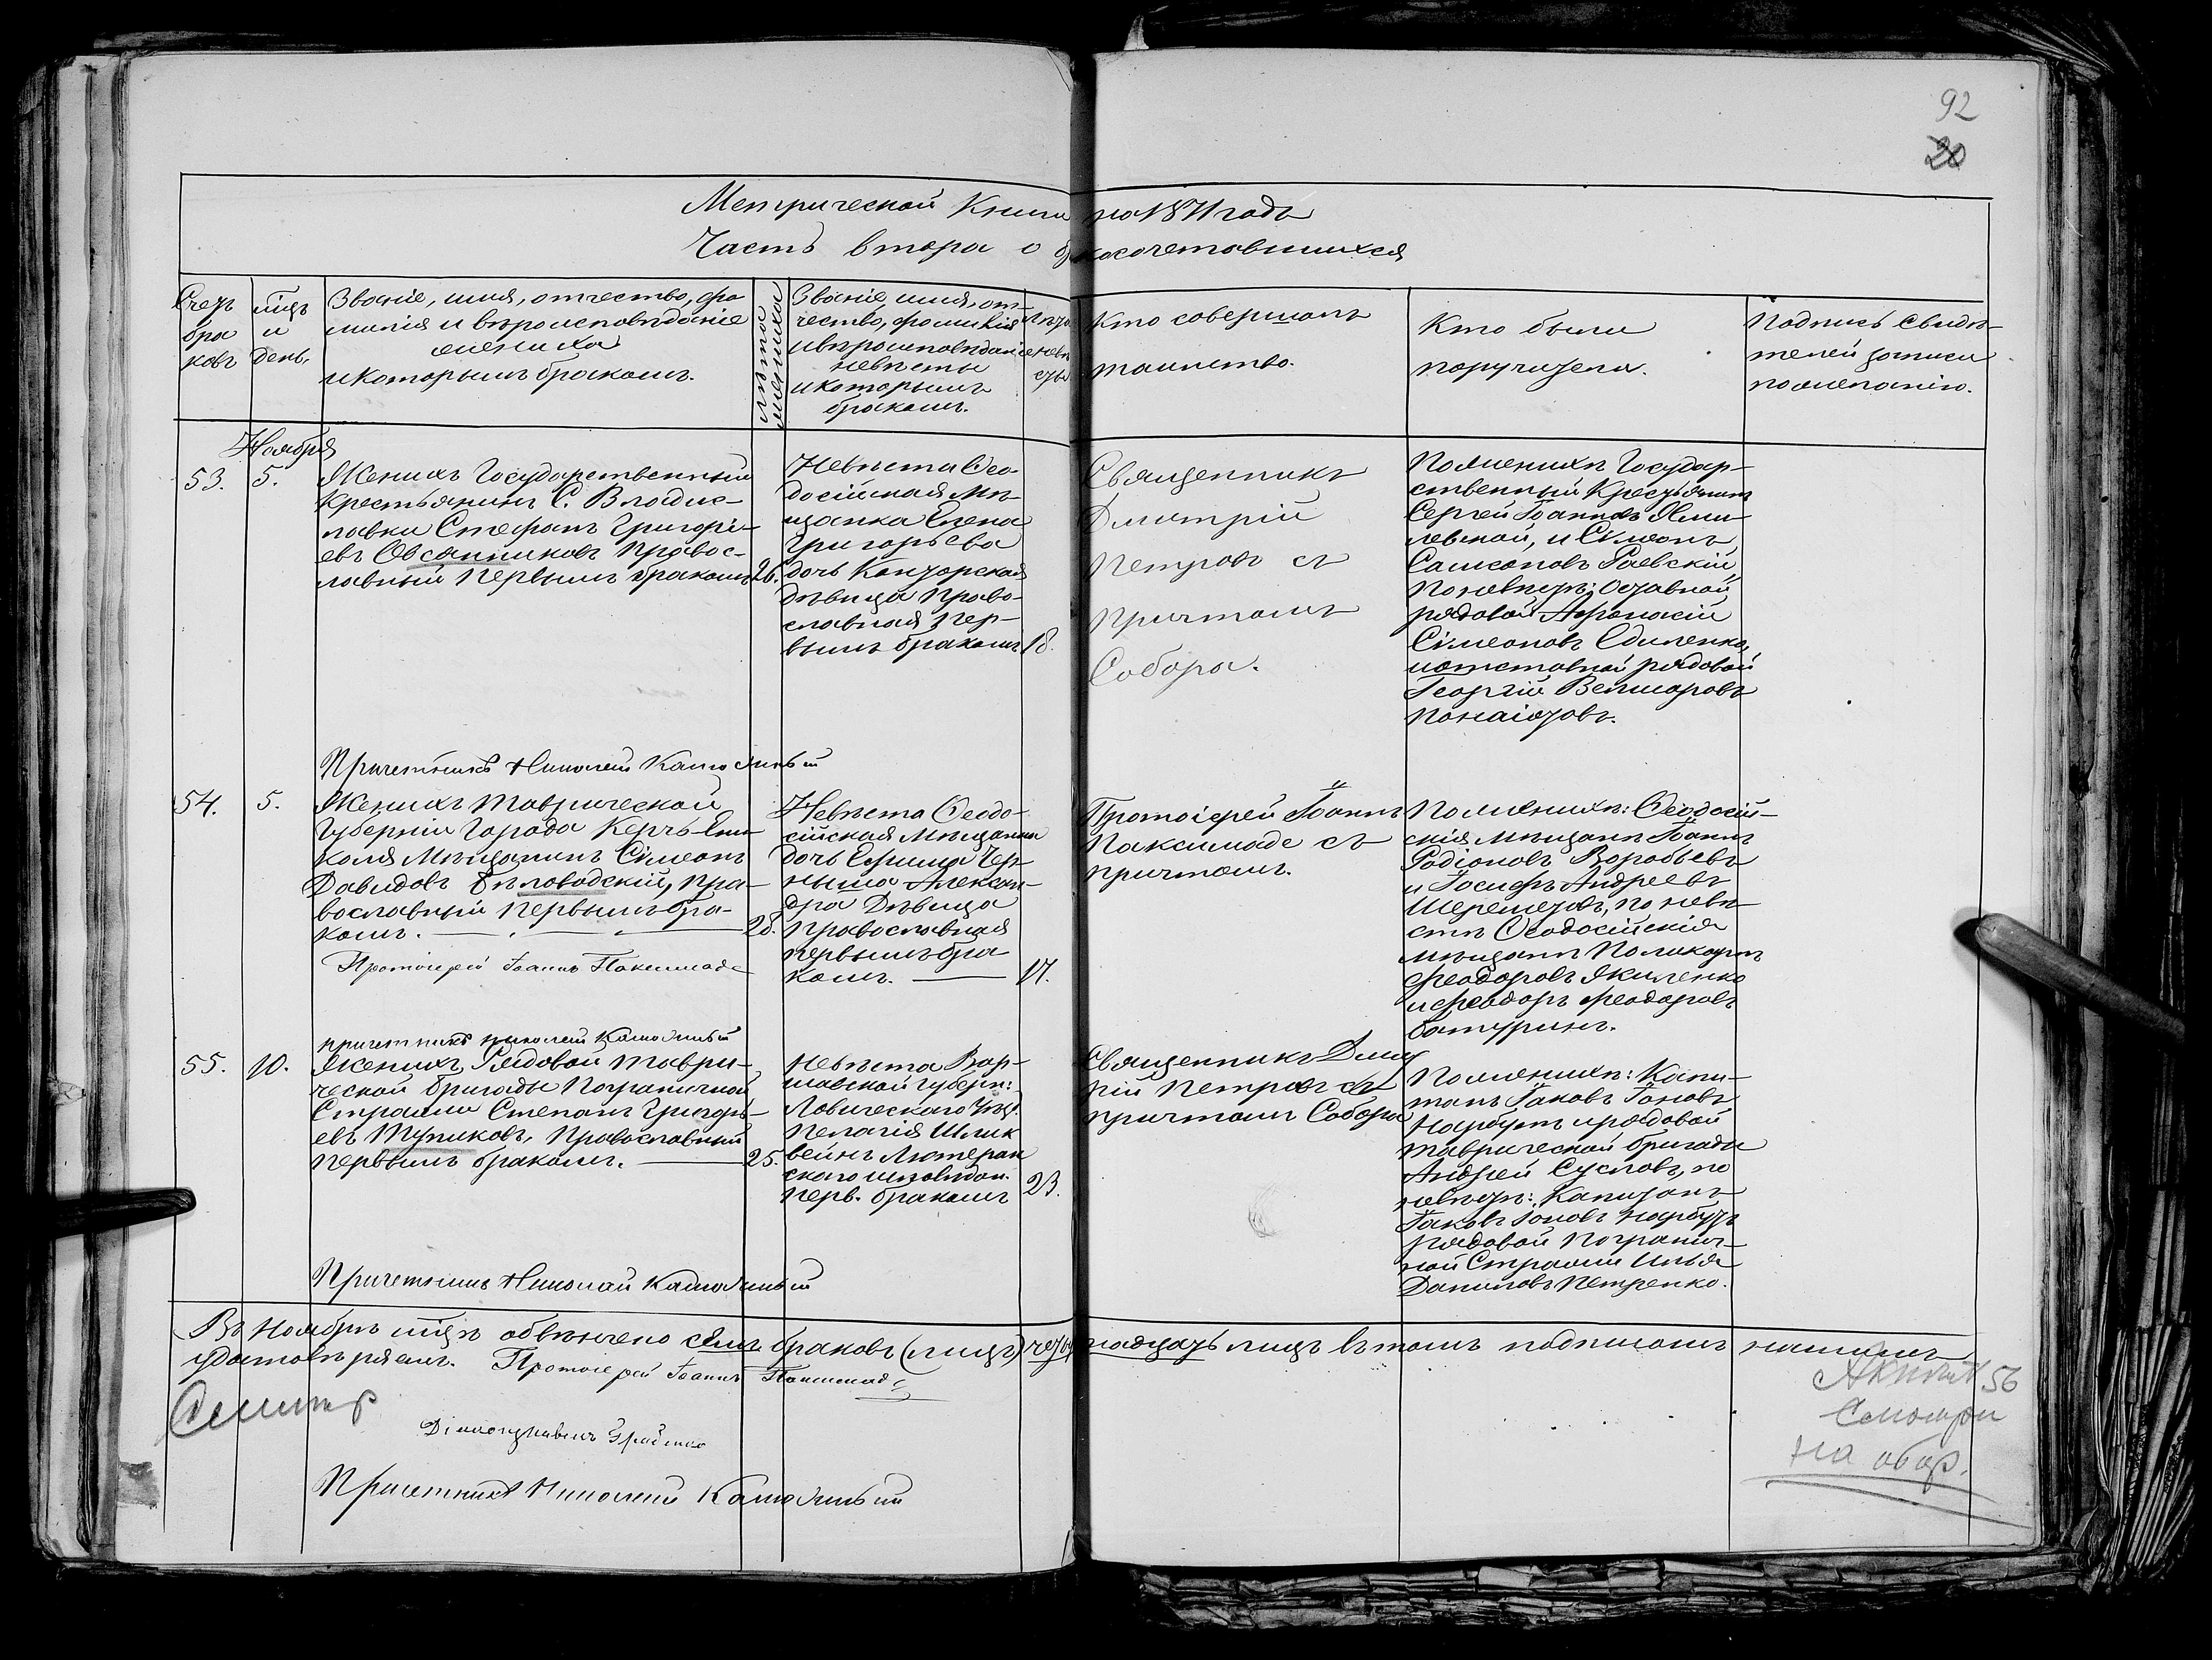 92
20
Метрической Книги на 1871 годъ
Часть втора о бракосочетавшихся
Счетъ
бра
ковъ
мѣцъ
и
день.
Званіе, имя, отчество, фа
милія и вѣроисповѣданіе
жениха
и которымъ бракомъ.
Лѣта
жениха
Званіе, имя, от-
чество, фамилія
и вѣроисповѣданіе
невѣсты
и которымъ
бракомъ.
Лѣта
невѣ
сты
Кто совершалъ
таинство.
Кто были
поручители.
Подпись свидѣ-
телей записи
по желанію.
Ноября
53. 5.
Женихъ Государственный
Крестьянинъ С. Владис-
лавки Стефанъ Григорі-
евъ Овсянниковъ правос-
лавный первымъ бракомъ 26.
Невѣста Ѳео-
досійская Мѣ-
щанка Елена
Григорьева
дочь Канторская
дѣвица право-
славная пер-
вымъ бракомъ 18.
Священникъ
Дмитрій
Петровъ съ
причтомъ
Собора.
По женихѣ Государ-
ственный Крестьянинъ
Сергей Іоанновъ
и Сімеонъ
Самсоновъ Раевскій
По невѣстѣ: отставной
рядовой Афанасій
Сімеоновъ Едиленко,
и отставной рядовой
Георгій
Причетникъ Николай
54. 5.
Женихъ Таврической
Губерніи Города Керчь-Ени-
коля Мѣщанинъ Сімеонъ
Давидовъ Бѣловодскій, пра-
вославный первымъ бра-
комъ. 28.
Протоіерей Іоаннъ Паксимаде
Невѣста Ѳеодо-
сійская мѣщанка
дочь Ефима Чер-
ныша Алексан-
дра дѣвица
православная
первымъ бра-
комъ. 17.
Протоіерей Іоаннъ
Паксимаде съ
причтомъ.
По женихѣ: Ѳеодосій-
скія мѣщане Іоаннъ
Родіоновъ Воробьевъ
и Іосифъ Андреевъ
Шереметовъ, по невѣ-
стѣ Ѳеодосійскія
мѣщане Поликарпъ
Феодоровъ Якиленко
и Феодоръ Феодоровъ
Батуринъ.
причетникъ Николай
55. 10.
Женихъ, Рядовой Таври-
ческой бригады Пограничной
Стражи Степанъ Григорь-
евъ Тупиковъ, Православный
первымъ бракомъ. 25.
Невѣста Вар-
шавской Губерн:
Ловическаго уѣзд.
Пелагія Шлик
вейнъ Лютеран
скаго исповѣдан.
перв. бракомъ 23.
Священникъ Дмит
рій Петровъ съ
причтомъ Собора
По женихѣ: Капи-
танъ Іаковъ Іоновъ
Нарбутъ и рядовой
таврической бригады
Андрей Сусловъ, по
невѣстѣ: Капитанъ
Іаковъ Іоновъ Нарбутъ
рядовой погранич-
ной Стражи Илья
Даниловъ Петренко.
Причетникъ Николай
Въ Ноябрѣ мѣцѣ обвѣнчено семь браковъ (лицъ) четырнадцать лицъ въ томъ подписомъ нашимъ
удостовѣряемъ. Протоіерей Іоаннъ Паксимаде
Причетникъ Николай
56
Смотри
на обор.